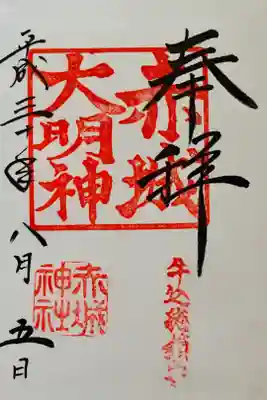 奉拝
牛込總鎮守
赤城
大明神
赤城
神社
平成三十年八月五日